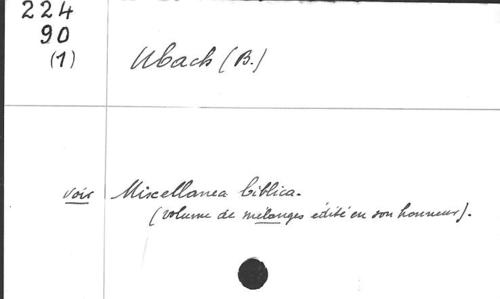 224
90
(1)
Ubach (B.)
voir Miscellanea biblica.
(volume de mélanges édité en son honneur).